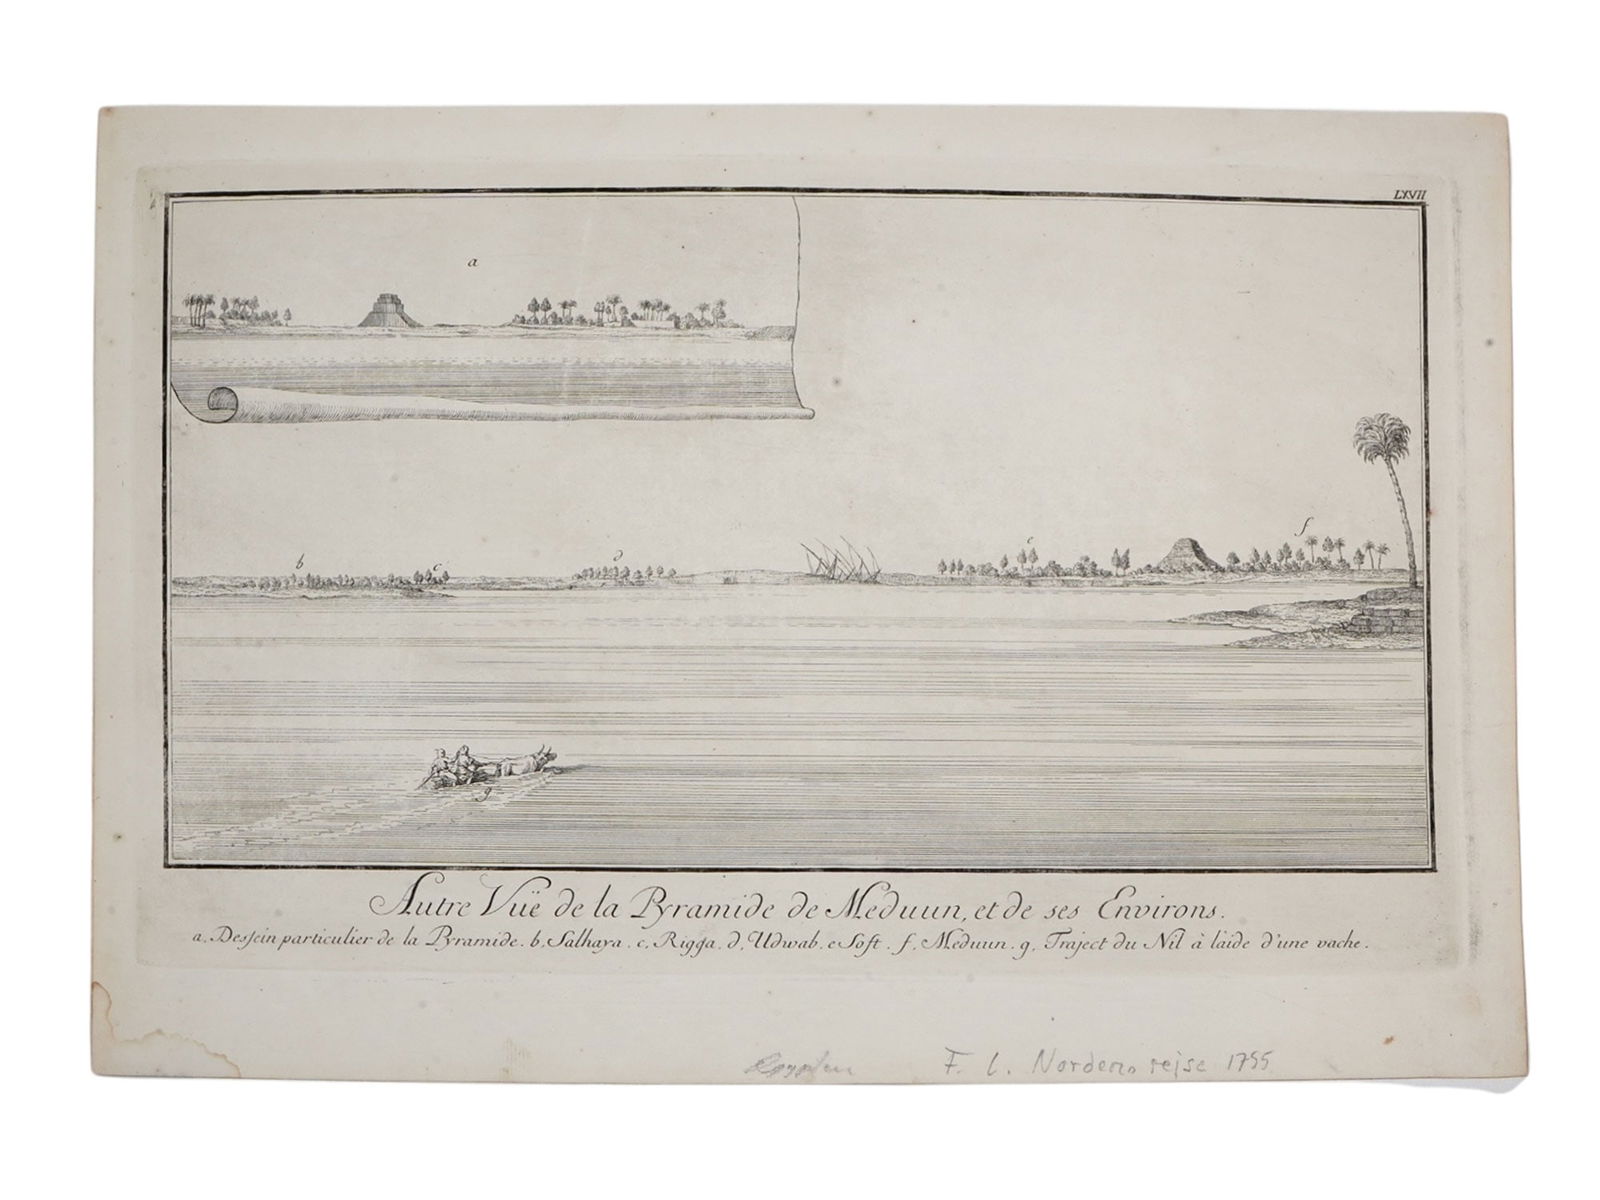 LXVII
a
b
c
d
e
f
g
Autre Vüe de la Pyramide de Meduun, et de ses Environs.
a. Dessein particulier de la Pyramide. b, Salhaya. c, Rigga. d, Udwab. e Soft. f, Meduun. g, Traject du Nil à l'aide d'une vache.
F. L. Nordens rejse 1755